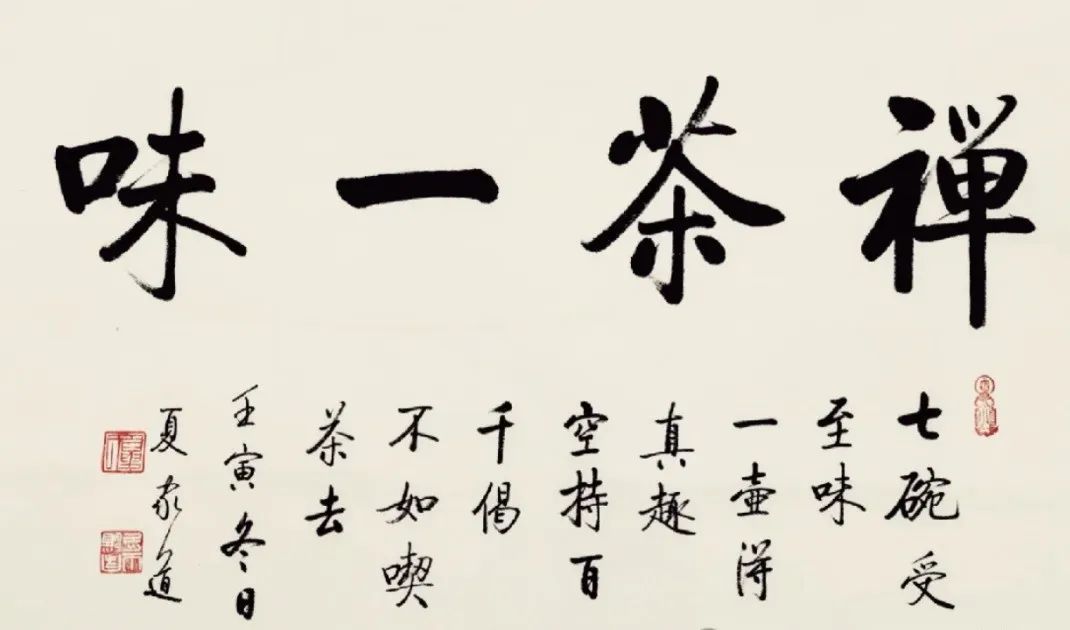 禅茶一味
七碗受
至味
一壶得
真趣
空持百
千偈
不如喫
茶去
壬寅冬日
夏家道